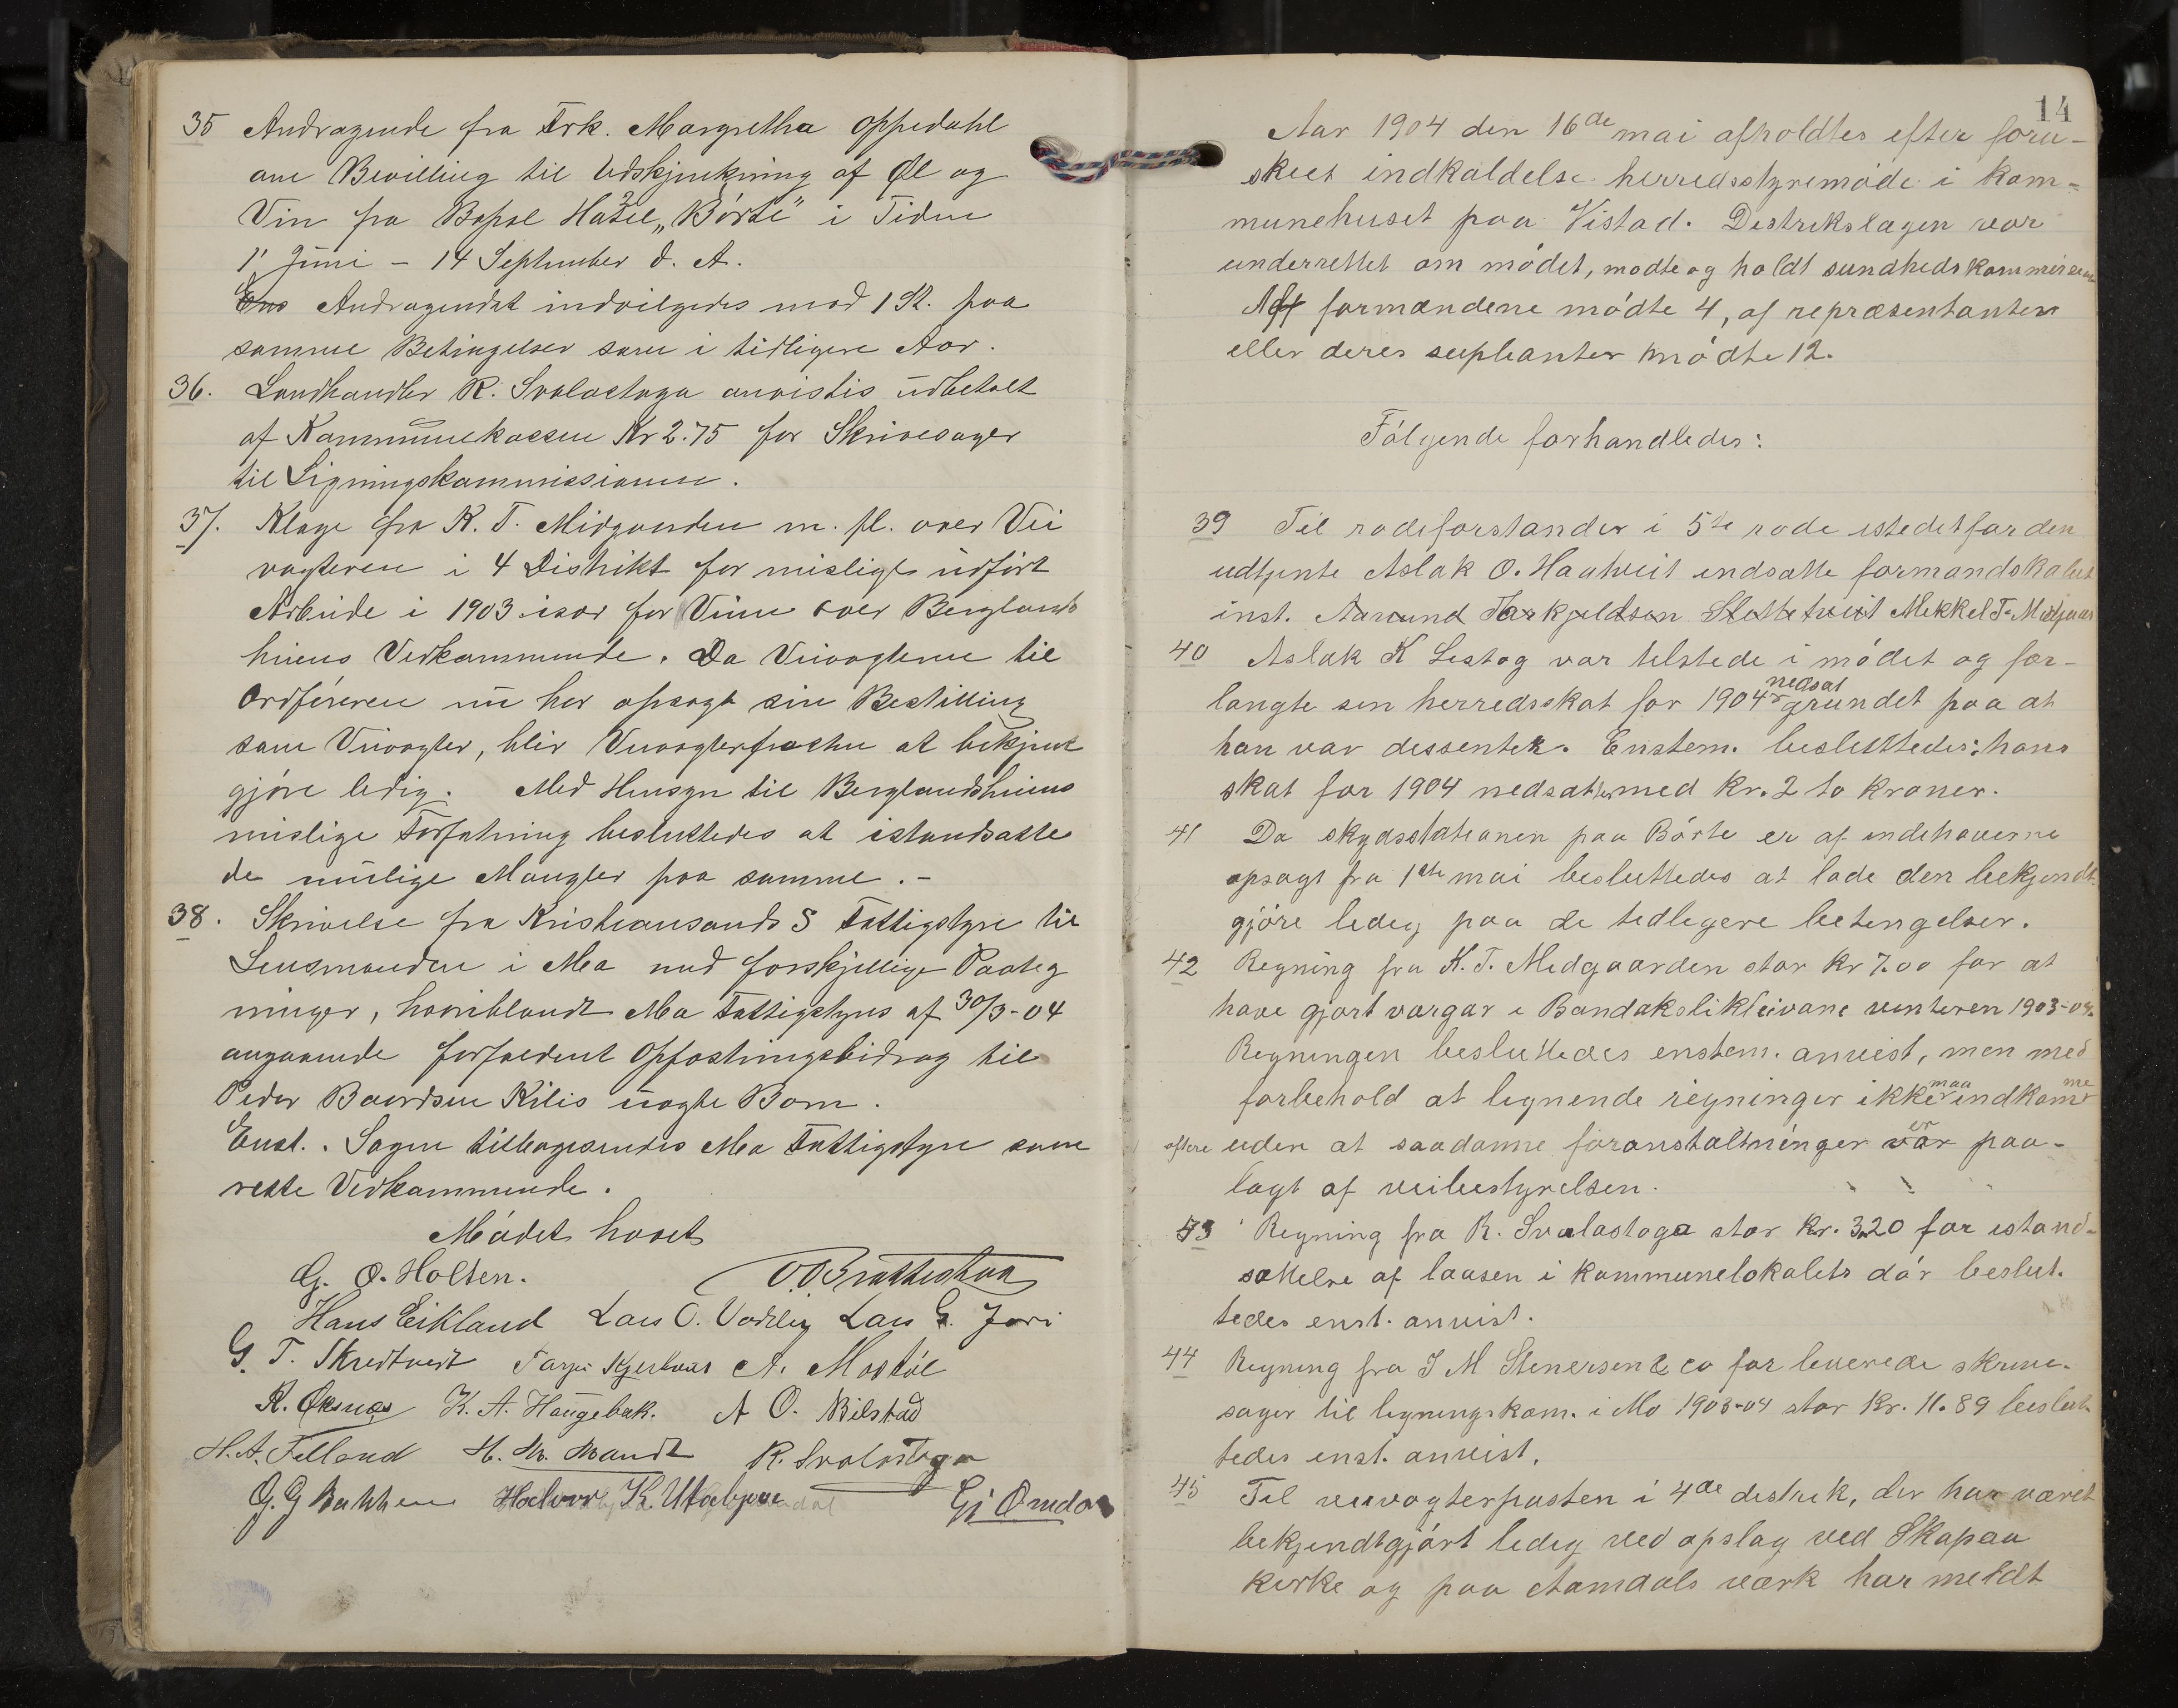 35 Andragende fra Frk. Margretha Oppedahl
om Bevilling til Udskjænkning af Øl og
Vin fra Hotel „Börte" i Tiden
1' Juni – 14 September d. A.
Andragendet indvilgedes mod 1 St. paa
samme Betingelser som i tidligere Aar.
36. Landhandler R. Svalastoga anvistes udbetalt
af Kommunekassen Kr 2.75 for Skrivesager
til Ligningskommissionen.
37. Klage fra K. T. Midgaarden m. fl. over Vei
vogteren i 4 Distrikt for mislige udfört
Arbeide i 1903 især for Veien over Berglands
heiens Vedkommende. Da Veivogteren til
Ordföreren nu har opsagt sin Bestilling
som Veivogter, blir Veivogterposten at bekjent
gjöre ledig. Med Hensyn til Berglandsheiens
mislige Forfatning besluttedes at istandsætte
de mulige Mangler paa samme. –
38. Skrivelse fra Kristiansands S Fattigstyre til
Lensmanden i Mo med forskjellige Paateg
ninger, hvoriblandt Mo Fattigstyres af 30/3-04
angaaende forfaldent Opfostringsbidrag til
Peder Baardsen Kilis uægte Barn.
Enst. Sagen tilbagesendes Mo Fattigstyre som
rette Vedkommende.
Mödet hævet
G. O. Holten. O. O. Brattestaa
Hans Eikland Lars O. Vadlig Lars G. Jori
G. T. Skredtveit A. Mostöl
R. Öksnæs K. A. Haugebak. A O. Bilstad
H. A. Felland H. M. Mandt R. Svalastoga
G. G Bakken Halvor K. Utabjaae Gj Omdal
14
Aar 1904 den 16de mai afholdtes efter foru-
skeet indkaldelse herredsstyremöde i kom-
munehuset paa Vistad. Distrikslægen var
underrettet om mödet, mödte og holdt sundhedskommission
Af formændene mödte 4, af repræsentanter
eller deres suplianter mödte 12.
Fölgende forhandledes:
39 Til rodeforstander i 5te rode istedetfor den
udtjente Aslak O. Haatveit indsatte formandskabet
inst. Aamund Tarkjeldson Slettetveit Mekkel T. Midgaar
40 Aslak K Lestog var tilstede i mödet og for-
langte sin herredsskat for 1904 nedsat grundet paa at
han var dissenter. Enstem. besluttedes: hans
skat for 1904 nedsattes med kr. 2 to kroner.
41 Da skydsstationen paa Börte er af indehaverne
opsagt fra 1ste mai besluttedes at lade den bekjendt-
gjöre ledig paa de tidligere betingelser.
42 Regning fra K. T. Midgaarden stor kr 7.00 for at
have gjort vargar i Bandakslikleivane vinteren 1903-04.
Regningen besluttedes enstem. anvist, men med
forbehold at lignende regninger ikke maa indkomme
oftere uden at saadanne foranstaltninger var er paa-
lagt af veibestyrelsen.
43 Regning fra R. Svalastoga stor kr. 3.20 for istand-
sættelse af laasen i kommunelokalets dör beslut.
tedes enst. anvist.
44 Regning fra J M Stenersen & co for leverede skrive-
sager til ligningskom. i Mo 1903-04 stor kr. 11.89 beslut
tedes enst. anvist.
45 Til veivogterposten i 4de distrik, der har været
bekjendtgjört ledig ved opslag ved Skapaa
kirke og paa Aamdals værk har meldt